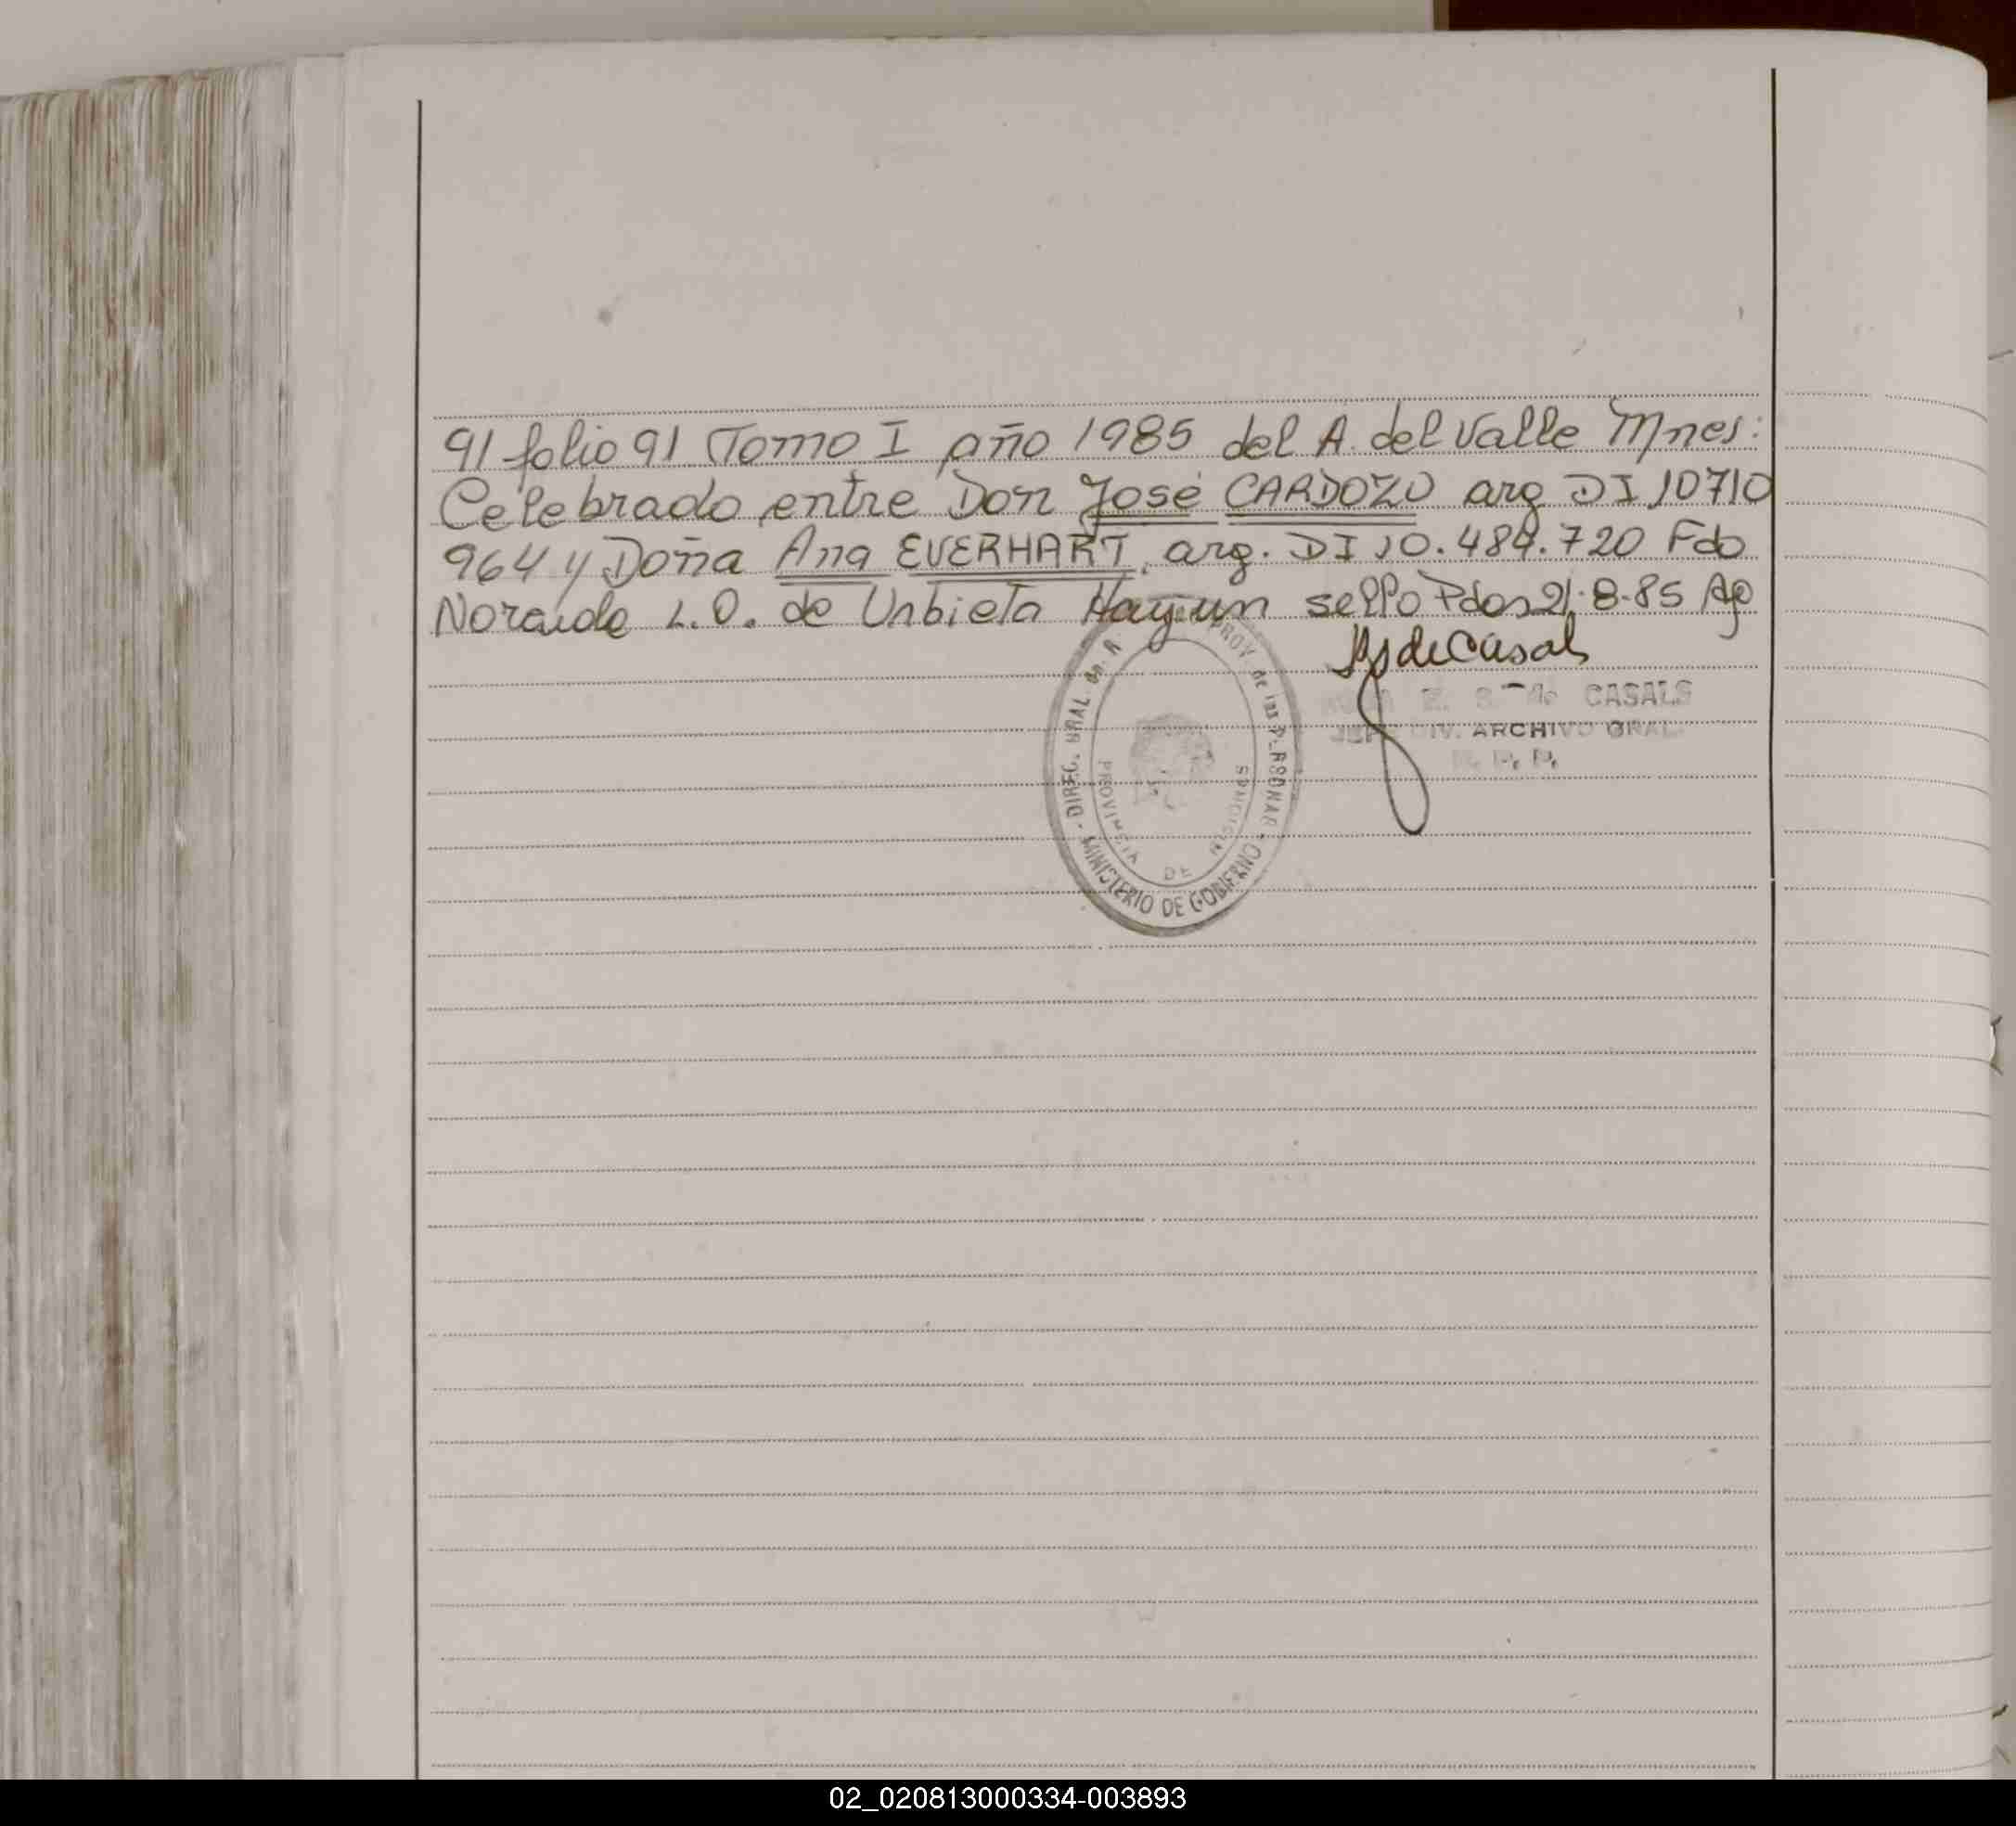 91 folio 91 Tomo I año 1985 del A. del Valle Mnes:
Celebrado entre Don José CARDOZO arg DI 10710
964 y Doña Ana EVERHART. arg. DI 10.484.720 Fdo
L.O. de Urbieta Hay un sello Pdas 21.8.85 Ap
de Casals
S. de CASALS
JEFE DIV. ARCHIVO GRAL.
R. P. P.
DIREC. GRAL PROV de las PERSONAS - MINISTERIO DE GOBIERNO -
PROVINCIA DE MISIONES
02_020813000334-003893